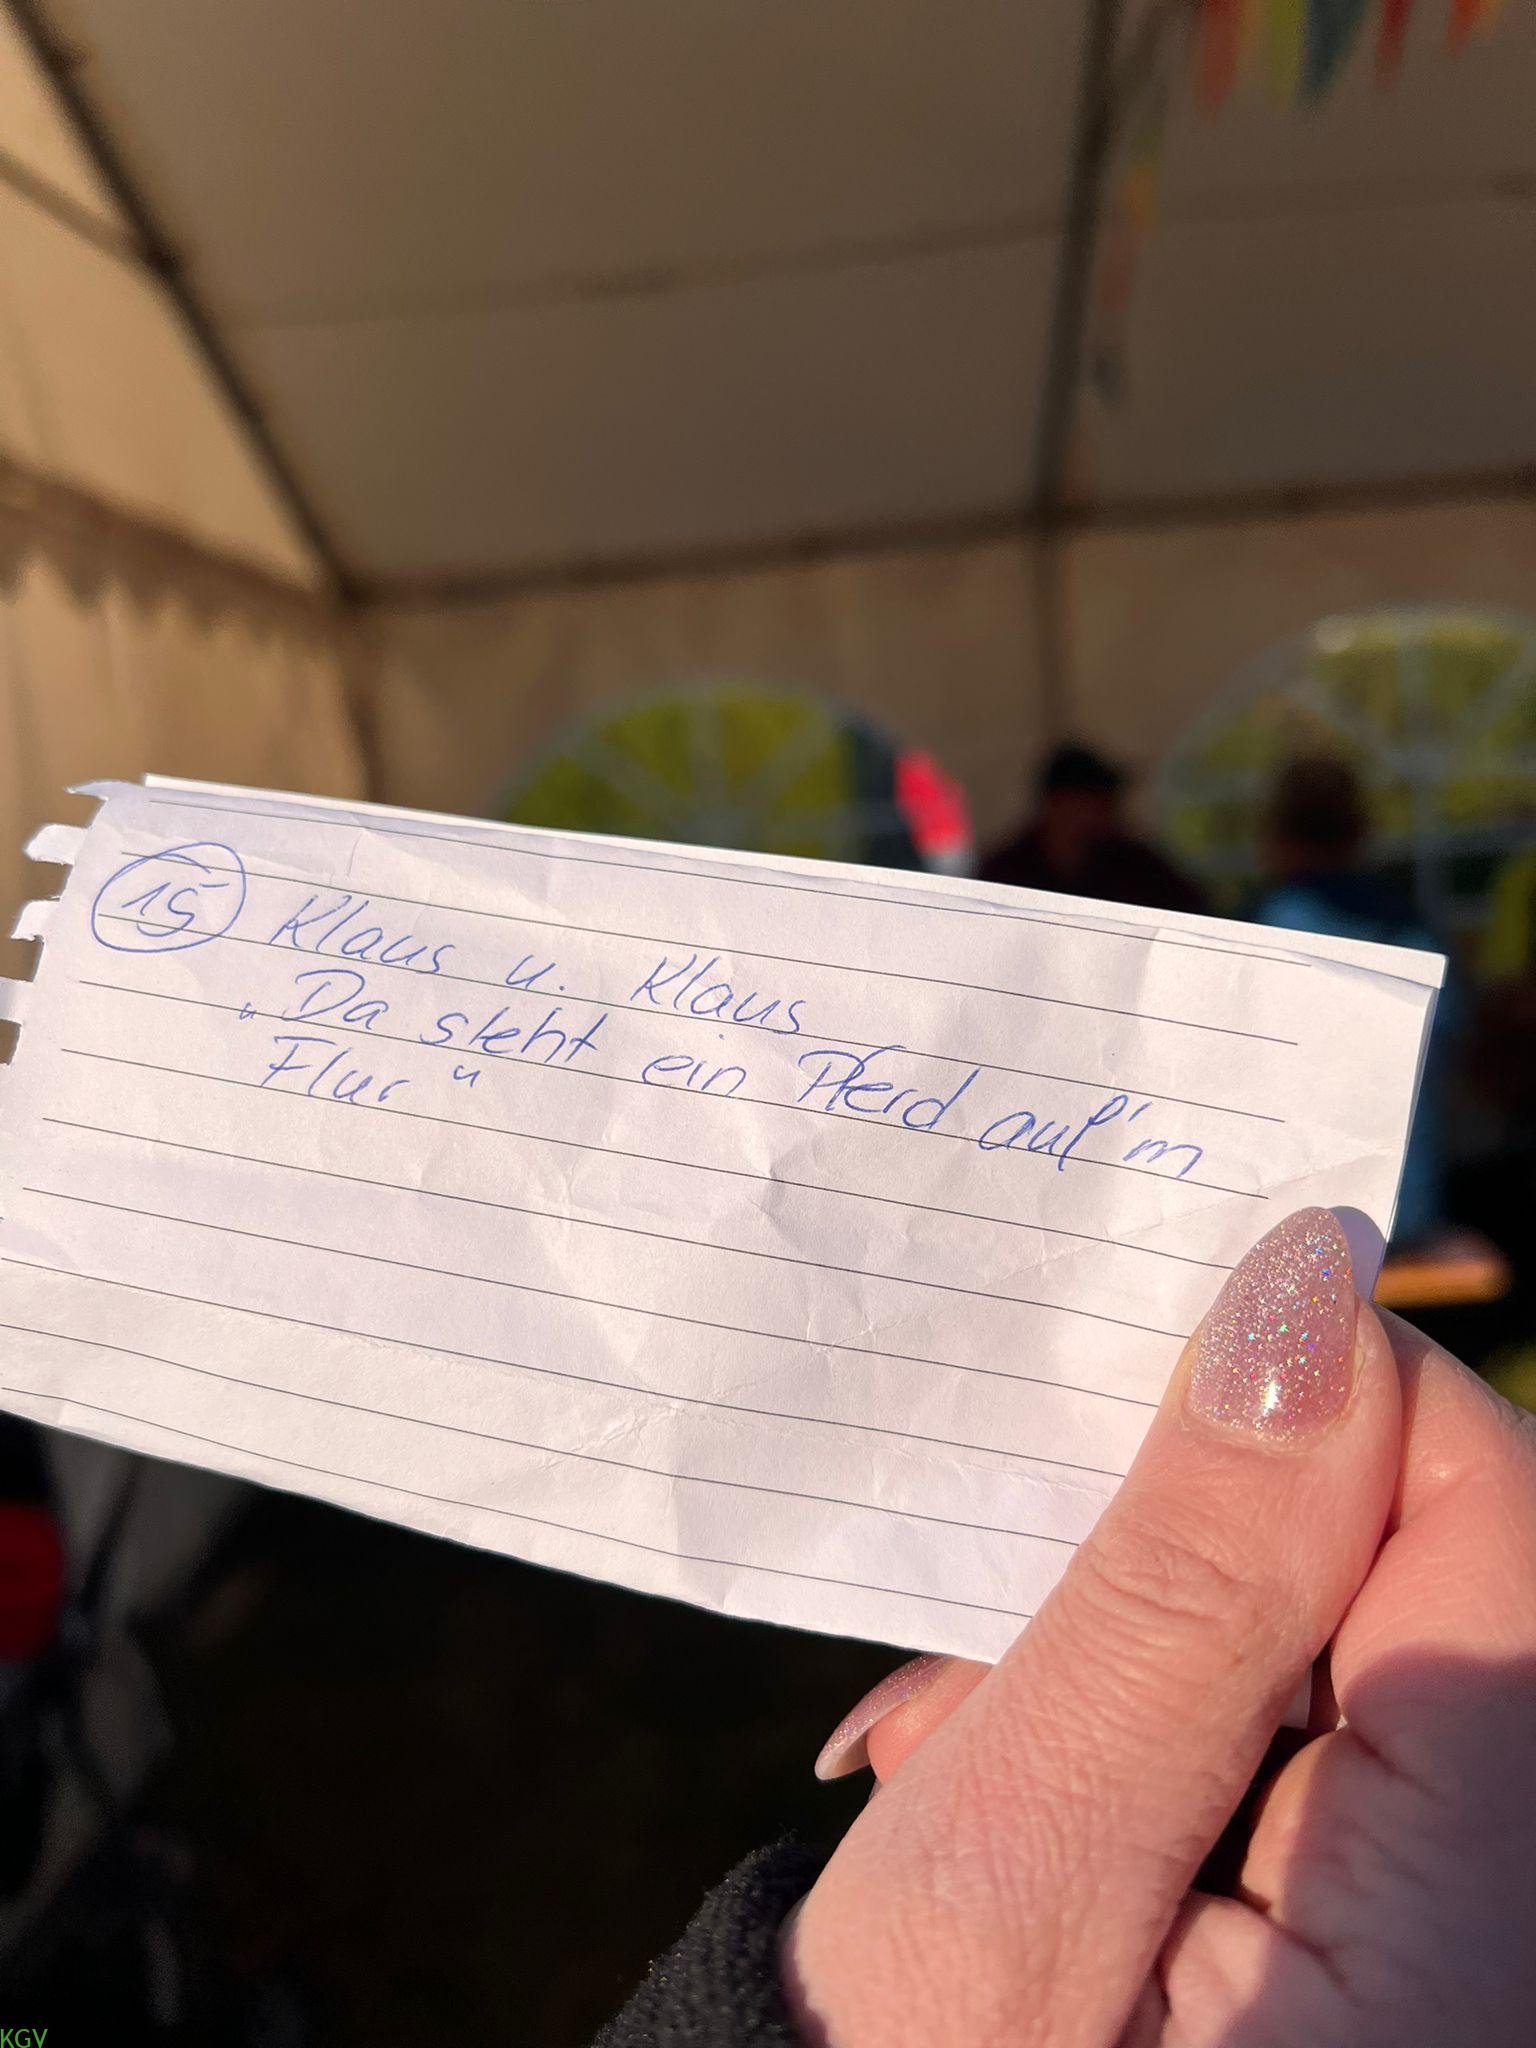 15 Klaus u. Klaus
"Da steht ein Pferd auf'm
Flur"
KGV